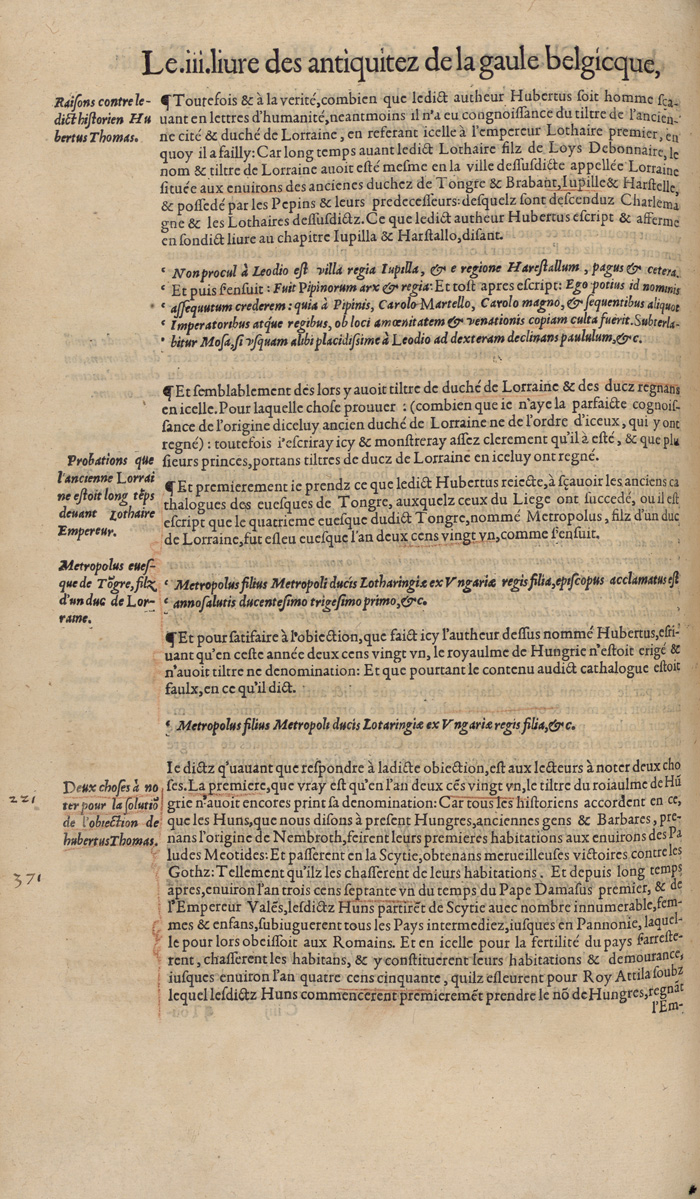 Le.iii.liure des antiquitez de la gaule belgicque,
Raisons contre le-
dict historien Hu
bertus Thomas.
¶Toutefois & à la verité,combien que ledict autheur Hubertus soit homme sça-
uant en lettres d'humanité,neantmoins il n'a eu congnoissance du tiltre de l'ancien-
ne cité & duché de Lorraine, en referant icelle à l'empereur Lothaire premier, en
quoy il a failly: Car long temps auant ledict Lothaire filz de Loys Debonnaire, le
nom & tiltre de Lorraine auoit esté mesme en la ville dessusdicte appellée Lorraine
située aux enuirons des ancienes duchez de Tongre & Brabant,Iupille& Harstelle,
& possedé par les Pepins & leurs predecesseurs: desquelz sont descenduz Charlema
gne & les Lothaires dessusdictz. Ce que ledict autheur Hubertus escript & afferme
en sondict liure au chapitre Iupilla & Harstallo,disant.
‘ Non procul à Leodio est villa regia Iupilla, & e regione Harestallum , pagus & cetera.
‘ Et puis s'ensuit : Fuit Pipinorum arx & regia: Et tost apres escript: Ego potius id nominis
‘ assequutum crederem : quia à Pipinis, Carolo Martello, Carolo magno, & sequentibus aliquot
‘ Imperatoribus atque regibus, ob loci amœnitatem & venationis copiam culta fuerit. Subterla-
‘ bitur Mosa, si vsquam alibi placidissime à Leodio ad dexteram declinans paululum,&c.
¶Et semblablement des lors y auoit tiltre de duché de Lorraine & des ducz regnans
en icelle. Pour laquelle chose prouuer : (combien que ie n'aye la parfaicte cognois-
sance de l'origine diceluy ancien duché de Lorraine ne de l'ordre d'iceux, qui y ont
regné) : toutefois i'escriray icy & monstreray assez clerement qu'il à esté, & que plu
sieurs princes,portans tiltres de ducz de Lorraine en iceluy ont regné.
Probations que
l'ancienne Lorrai
ne estoit long tẽps
deuant Lothaire
Empereur.
¶ Et premierement ie prendz ce que ledict Hubertus reiecte,à sçauoir les anciens ca
thalogues des euesques de Tongre, auxquelz ceux du Liege ont succedé, ou il est
escript que le quatrieme euesque dudict Tongre,nommé Metropolus, filz d'un duc
de Lorraine,fut esleu euesque l'an deux cens vingt vn,comme s'ensuit.
Metropolus eues-
que de Tõgre,filz
d'un duc de Lor-
raine.
‘ Metropolus filius Metropoli ducis Lotharingiæ ex Vngariæ regis filia,episcopus acclamatus est
‘ anno salutis ducentesimo trigesimo primo,&c.
¶Et pour satisfaire à l'obiection,que faict icy l'autheur dessus nommé Hubertus,esti-
uant qu'en ceste année deux cens vingt vn, le royaulme de Hungrie n'estoit erigé &
n'auoit tiltre ne denomination: Et que pourtant le contenu audict cathalogue estoit
faulx,en ce qu'il dict.
‘ Metropolus filius Metropoli ducis Lotaringiæ ex Vngariæ regis filia,&c.
Ie dictz q'uauant que respondre à ladicte obiection,est aux lecteurs à noter deux cho
ses. La premiere,que vray est qu'en l'an deux cẽs vingt vn,le tiltre du roiaulme de Hũ
grie n'auoit encores print sa denomination: Car tous les historiens accordent en ce,
que les Huns,que nous disons à present Hungres,anciennes gens & Barbares, pre-
nans l'origine de Nembroth,feirent leurs premieres habitations aux enuirons des Pa
ludes Meotides: Et passerent en la Scytie,obtenans merueilleuses victoires contre les
Gothz: Tellement qu'ilz les chasserent de leurs habitations . Et depuis long temps
apres,enuiron l'an trois cens septante vn du temps du Pape Damasus premier, & de
l'Empereur Valẽs,lesdictz Huns partirẽt de Scytie auec nombre innumerable,fem-
mes & enfans,subiuguerent tous les Pays intermediez,iusques en Pannonie, laquel-
le pour lors obeissoit aux Romains. Et en icelle pour la fertilité du pays s'arreste-
rent, chasserent les habitans, & y constituerent leurs habitations & demourance,
iusques enuiron l'an quatre cens cinquante, quilz esleurent pour Roy Attila soubz
lequel lesdictz Huns commencerent premieremẽt prendre le nõ de Hungres,regnãt
l'Em-
Deux choses à no
ter pour la solutiõ
de l'obiection de
hubertus Thomas.
221
371